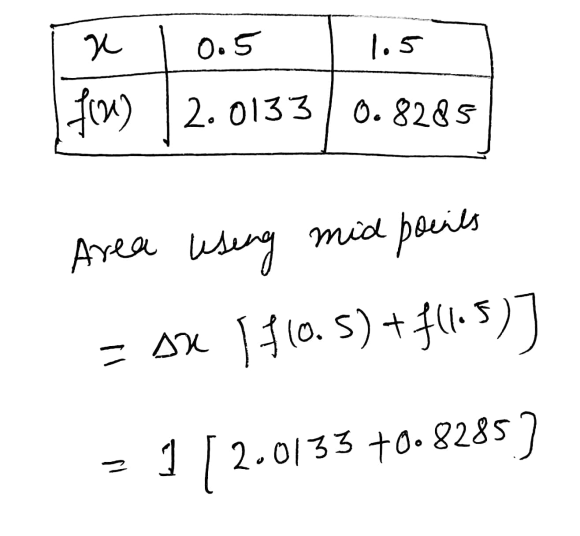 x 0.5 1.5
f(x) 2.0133 0.8285
Area using mid points
= Δx [f(0.5) + f(1.5)]
= 1 [2.0133 + 0.8285]